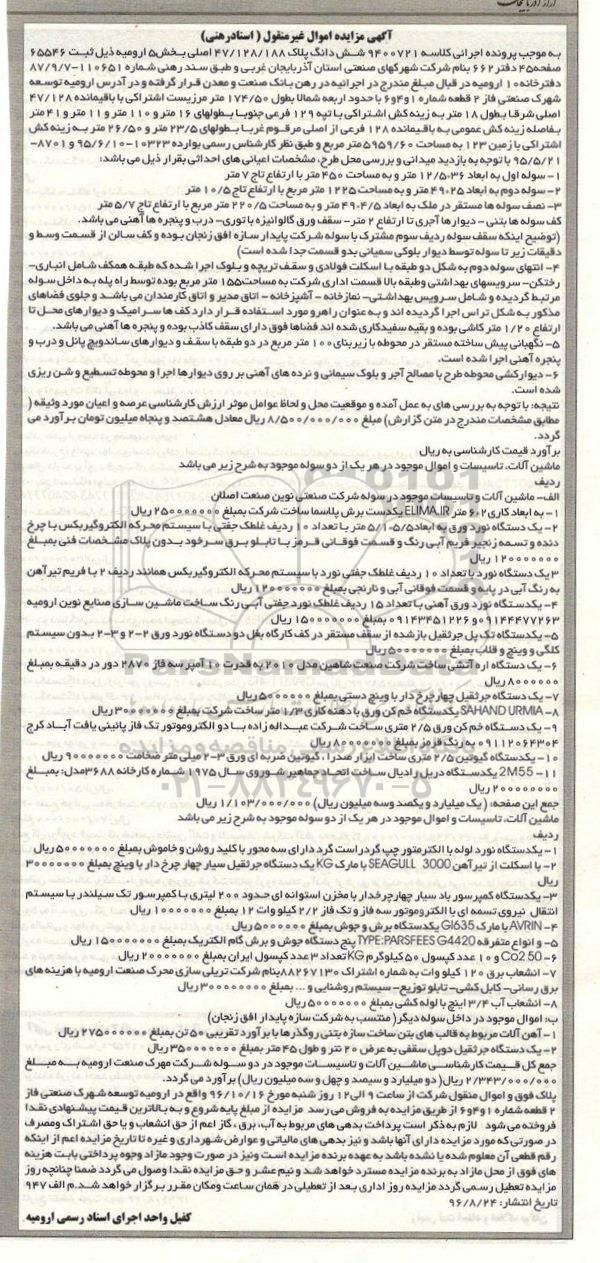 آگهی مزایده اموال غیرمنقول ( اسنادرهنی)
به موجب پرونده اجرائی کلاسه ۹۴۰۰۷۲۱ شش دانگ پلاک ۴۷/۱۲۸/۱۸۸ اصلی بخش۵ ارومیه ذیل ثبت ۶۵۵۴۶
صفحه۴۵ دفتر ۶۶۲ بنام شرکت شهرکهای صنعتی استان آذربایجان غربی و طبق سند رهنی شماره ۱۱۰۶۵۱-۸۷/۹/۷
دفترخانه۱۰ ارومیه در قبال مبلغ مندرج در اجرائیه در رهن بانک صنعت و معدن قرار گرفته و در آدرس ارومیه توسعه
شهرک صنعتی فاز ۲ قطعه شماره ۱و۴و۶ با حدود اربعه شمالا بطول ۱۷۴/۵۰ متر مرزیست اشتراکی با باقیمانده ۴۷/۱۲۸
اصلی شرقا بطول ۱۸ متر به زینه کش اشتراکی با تپه ۱۲۹ فرعی جنوبا بطولهای ۱۶ متر و ۱۱۰ متر و ۱۱ متر و ۴۱ متر
بفاصله زینه کش عمومی به باقیمانده ۱۲۸ فرعی از اصلی مرقوم غربا بطولهای ۲۳/۵ متر و ۲۶/۵۰ متر به زینه کش
اشتراکی با زمین ۱۲۳ به مساحت ۵۹۵۹/۶۰ متر مربع و طبق نظر کارشناس رسمی بوارده ۱۰۳۲۳-۹۵/۶/۱۰ و ۸۷۰۱-
۹۵/۵/۲۱ با توجه به بازدید میدانی و بررسی محل طرح، مشخصات اعیانی های احداثی بقرار ذیل می باشد:
۱- سوله اول به ابعاد ۱۲/۵،۳۶ متر و به مساحت ۴۵۰ متر با ارتفاع تاج ۷ متر
۲- سوله دوم به ابعاد ۴۹،۲۵ متر و به مساحت ۱۲۲۵ متر مربع با ارتفاع تاج ۱۰/۵ متر
۳- نصف سوله ها مستقر در ملک به ابعاد ۴۹،۴/۵ متر و به مساحت ۲۲۰/۵ متر مربع با ارتفاع تاج ۵/۷ متر
کف سوله ها بتنی - دیوارها آجری تا ارتفاع ۲ متر- سقف ورق گالوانیزه با توری- درب و پنجره ها آهنی می باشد.
(توضیح اینکه سقف سوله ردیف سوم مشترک با سوله شرکت پایدار سازه افق زنجان بوده و کف سالن از قسمت وسط و
دقیقات زیر تا سوله توسط دیوار بلوکی سمیانی بدو قسمت جدا شده است)
۴- انتهای سوله دوم به شکل دو طبقه با اسکلت فولادی و سقف تریچه و بلوک اجرا شده که طبقه همکف شامل انباری-
رختکن- سرویسهای بهداشتی وطبقه بالا قسمت اداری شرکت به مساحت۱۵۵ متر مربع بوده توسط راه پله به داخل سوله
مرتبط گردیده و شامل سرویس بهداشتی- نمازخانه - آشپزخانه - اتاق مدیر و اتاق کارمندان می باشد و جلوی فضاهای
مذکور به شکل تراس اجرا گردیده اند و به عنوان راهرو مورد استفاده قرار دارد کف ها سرامیک و دیوارهای محل تا
ارتفاع ۱/۲۰ متر کاشی بوده و بقیه سفیدکاری شده اند فضاها فوق دارای سقف کاذب بوده و پنجره ها آهنی می باشد.
۵- نگهبانی پیش ساخته مستقر در محوطه با زیربنای۱۰۰ متر مربع در دو طبقه با سقف و دیوارهای ساندویچ پانل و درب و
پنجره آهنی اجرا شده است.
۶- دیوارکشی محوطه طرح با مصالح آجر و بلوک سیمانی و نرده های آهنی بر روی دیوارها اجرا و محوطه تسطیع و شن ریزی
شده است.
نتیجه: با توجه به بررسی های به عمل آمده و موقعیت محل و لحاظ عوامل موثر ارزش کارشناسی عرصه و اعیان مورد وثیقه (
مطابق مشخصات مندرج در متن گزارش) مبلغ ۸/۵۰۰/۰۰۰/۰۰۰ ریال معادل هشتصد و پنجاه میلیون تومان برآورد می
گردد.
برآورد قیمت کارشناسی به ریال
ماشین آلات، تاسیسات و اموال موجود در هر یک از دو سوله موجود به شرح زیر می باشد
ردیف
الف- ماشین آلات و تاسیسات موجود در سوله شرکت صنعتی نوین صنعت اصلان
۱- به ابعاد کاری ۶،۲ متر ELIMA.IR یکدست برش پلاسما ساخت شرکت بمبلغ ۲۵۰۰۰۰۰۰۰ ریال
۲- یک دستگاه نورد ورق به ابعاد۵/۵-۱/۵ متر با تعداد ۱۰ ردیف غلطک جفتی با سیستم محرکه الکتروگیربکس با چرخ
دنده و تسمه زنجیر فریم آبی رنگ و قسمت فوقانی قرمز با تابلو برق سرخود بدون پلاک مشخصات فنی بمبلغ
۱۲۰۰۰۰۰۰۰ ریال
۳ یک دستگاه نورد با تعداد ۱۰ ردیف غلطک جفتی نورد با سیستم محرکه الکتروگیربکس همانند ردیف ۲ با فریم تیرآهن
به رنگ آبی در پایه و قسمت فوقانی آبی و نارنجی بمبلغ ۱۲۰۰۰۰۰۰۰ ریال
۴- یکدستگاه نورد ورق آهنی با تعداد ۱۵ ردیف غلطک نورد جفتی آبی رنگ ساخت ماشین سازی صنایع نوین ارومیه
۰۹۱۴۴۴۷۷۲۶۳ و ۰۹۱۴۳۴۵۱۲۲۶ بمبلغ ۱۵۰۰۰۰۰۰۰ ریال
۵- یکدستگاه تک پل جرثقیل بازشده از سقف مستقر در کف کارگاه بغل دو دستگاه نورد ورق ۲-۲ و ۳-۲ بدون سیستم
کلگی و وینچ و قلاب بمبلغ ۵۰۰۰۰۰۰۰ ریال
۶- یک دستگاه اره آتشی ساخت شرکت صنعت شاهین مدل ۲۰۱۰ به قدرت ۱۰ آمپر سه فاز ۲۸۷۰ دور در دقیقه بمبلغ
۸۰۰۰۰۰۰ ریال
۷- یک دستگاه جرثقیل چهارچرخ دار با وینچ دستی بمبلغ ۵۰۰۰۰۰۰ ریال
۸- SAHAND URMIA یکدستگاه خم کن ورق با دهنه کاری ۱/۳ متر ساخت شرکت بمبلغ ۳۰۰۰۰۰۰۰ ریال
۹- یک دستگاه خم کن ورق ۲/۵ متری ساخت شرکت عبداله زاده با دو الکتروموتور تک فاز پائینی یافت آباد کرج
۰۹۱۱۲۰۶۴۳۰۴ به رنگ قرمز بمبلغ ۸۰۰۰۰۰۰۰ ریال
۱۰- یکدستگاه گیوتین ۲/۵ متری ساخت ابزار صدرا، گیوتین ضربه ای ورق ۳-۲ میلی متر ضخامت ۹۰۰۰۰۰۰۰ ریال
۱۱- 2M55 یکدستگاه دریل رادیال ساخت اتحاد جماهیر شوروی سال ۱۹۷۵ شماره کارخانه ۳۶۸۸مدل: بمبلغ
۲۰۰۰۰۰۰۰۰ ریال
جمع این صفحه: ( یک میلیارد و یکصد وسه میلیون ریال) ۱/۱۰۳/۰۰۰/۰۰۰ ریال
ماشین آلات، تاسیسات و اموال موجود در هر یک از دو سوله موجود به شرح زیر می باشد
ردیف
۱- یکدستگاه نورد لوله با الکترمتور چپ گردراست گرد دارای سه محور با کلید روشن و خاموش بمبلغ ۵۰۰۰۰۰۰۰ ریال
۲- با اسکلت از تیرآهن SEAGULL 3000 با مارک KG یک دستگاه جرثقیل سیار چهار چرخ دار با وینچ بمبلغ ۳۰۰۰۰۰۰۰
ریال
۳- یکدستگاه کمپرسور باد سیار چهارچرخدار با مخزن استوانه ای حدود ۲۰۰ لیتری با کمپرسور تک سیلندر با سیستم
انتقال نیروی تسمه ای با الکتروموتور سه فاز و تک فاز ۲/۲ کیلو وات ۱۲ بمبلغ ۱۰۰۰۰۰۰۰ ریال
۴- AVRIN با مارک GI635 یکدستگاه برش و جوش بمبلغ ۵۰۰۰۰۰۰ ریال
۵- و انواع متفرقه TYPE:PARSFEES G4420 پنج دستگاه جوش و برش گام الکتریک بمبلغ ۱۵۰۰۰۰۰۰۰ ریال
۶- Co2 50 و ۱۰ عدد کپسول ۵۰ کیلوگرم KGتعداد ۳ عدد کپسول ایران بمبلغ ۲۰۰۰۰۰۰۰ ریال
۷- انشعاب برق ۱۲۰ کیلو وات به شماره اشتراک ۸۸۲۶۷۱۳۰بنام شرکت تریلی سازی محرک صنعت ارومیه با هزینه های
برق رسانی- کابل کشی- تابلو توزیع- سیستم روشنایی و ... بمبلغ ۳۰۰۰۰۰۰۰۰ ریال
۸- انشعاب آب ۳/۴ اینچ با لوله کشی بمبلغ ۵۰۰۰۰۰۰۰ ریال
ب: اموال موجود در داخل سوله دیگر( منتسب به شرکت سازه پایدار افق زنجان)
۱- آهن آلات مربوط به قالب های بتن ساخت سازه بتنی روگذرها با برآورد تقریبی ۵۰ تن بمبلغ ۲۷۵۰۰۰۰۰۰ ریال
۲- یک دستگاه جرثقیل دوپل سقفی به عرض ۲۰ نتر و طول ۴۵ متر بمبلغ ۳۵۰۰۰۰۰۰۰ ریال
جمع کل قیمت کارشناسی ماشین آلات و تاسیسات موجود در دو سوله شرکت مهرک صنعت ارومیه به مبلغ
۲/۳۴۳/۰۰۰/۰۰۰ ریال( دو میلیارد و سیصد و چهل و سه میلیون ریال) برآورد می گردد.
پلاک فوق و اموال منقول شرکت از ساعت ۹ الی۱۲ روز شنبه مورخ ۹۶/۱۰/۱۶ واقع در ارومیه توسعه شهرک صنعتی فاز
۲ قطعه شماره ۱و۴و۶ از طریق مزایده به فروش می رسد مزایده از مبلغ پایه شروع و به بالاترین قیمت پیشنهادی نقدا
فروخته می شود لازم به ذکر است پرداخت بدهی های مربوط به آب، برق، گاز اعم از حق انشعاب و یا حق اشتراک ومصرف
در صورتی که مورد مزایده دارای آنها باشد و نیز بدهی های مالیاتی و عوارض شهرداری و غیره تا تاریخ مزایده اعم از اینکه
رقم قطعی آن معلوم شده یا نشده باشد به عهده برنده مزایده است ونیز در صورت وجود مازاد وجوه پرداختی بابت هزینه
های فوق از محل مازاد به برنده مزایده مسترد خواهد شد و نیم عشر و حق مزایده نقدا وصول می گردد ضمنا چنانچه روز
مزایده تعطیل رسمی گردد مزایده روز اداری بعد از تعطیلی در همان ساعت ومکان مقرر برگزار خواهد شد.م الف ۹۴۷
تاریخ انتشار: ۹۶/۸/۲۴
کفیل واحد اجرای اسناد رسمی ارومیه
ParsNamadData
۰۲۱-۸۸۳۴۹۶۷۰-۵